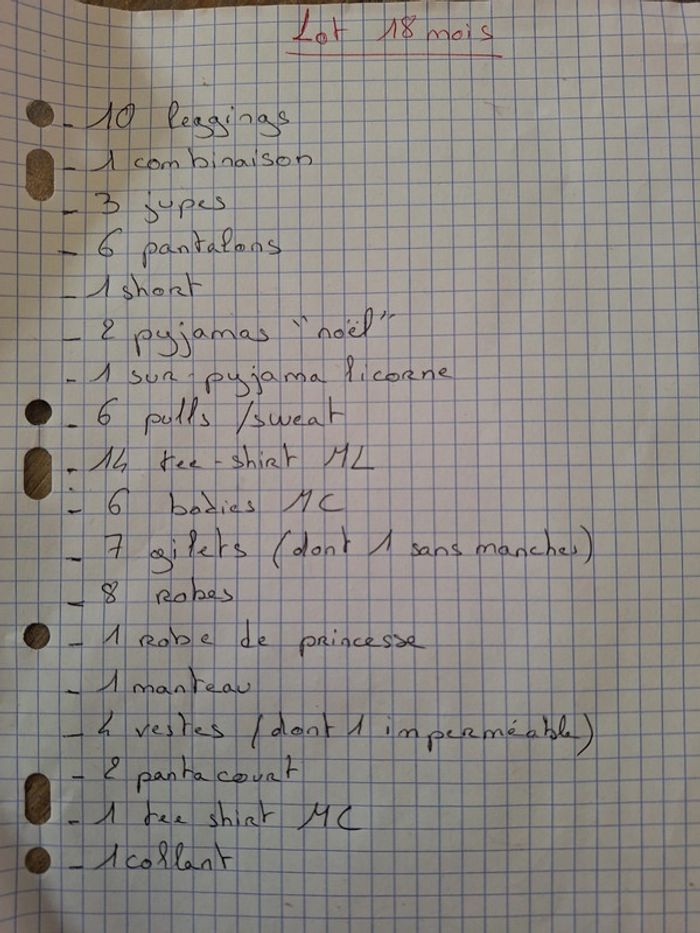 Lot 18 mois
- 10 leggings
- 1 combinaison
- 3 jupes
- 6 pantalons
- 1 short
- 2 pyjamas "noël"
- 1 sur-pyjama licorne
- 6 pulls /sweat
- 14 tee-shirt ML
- 6 bodies MC
- 7 gilets (dont 1 sans manches)
- 8 robes
- 1 robe de princesse
- 1 manteau
- 4 vestes (dont 1 imperméable)
- 2 pantacourt
- 1 tee shirt MC
- 1 collant